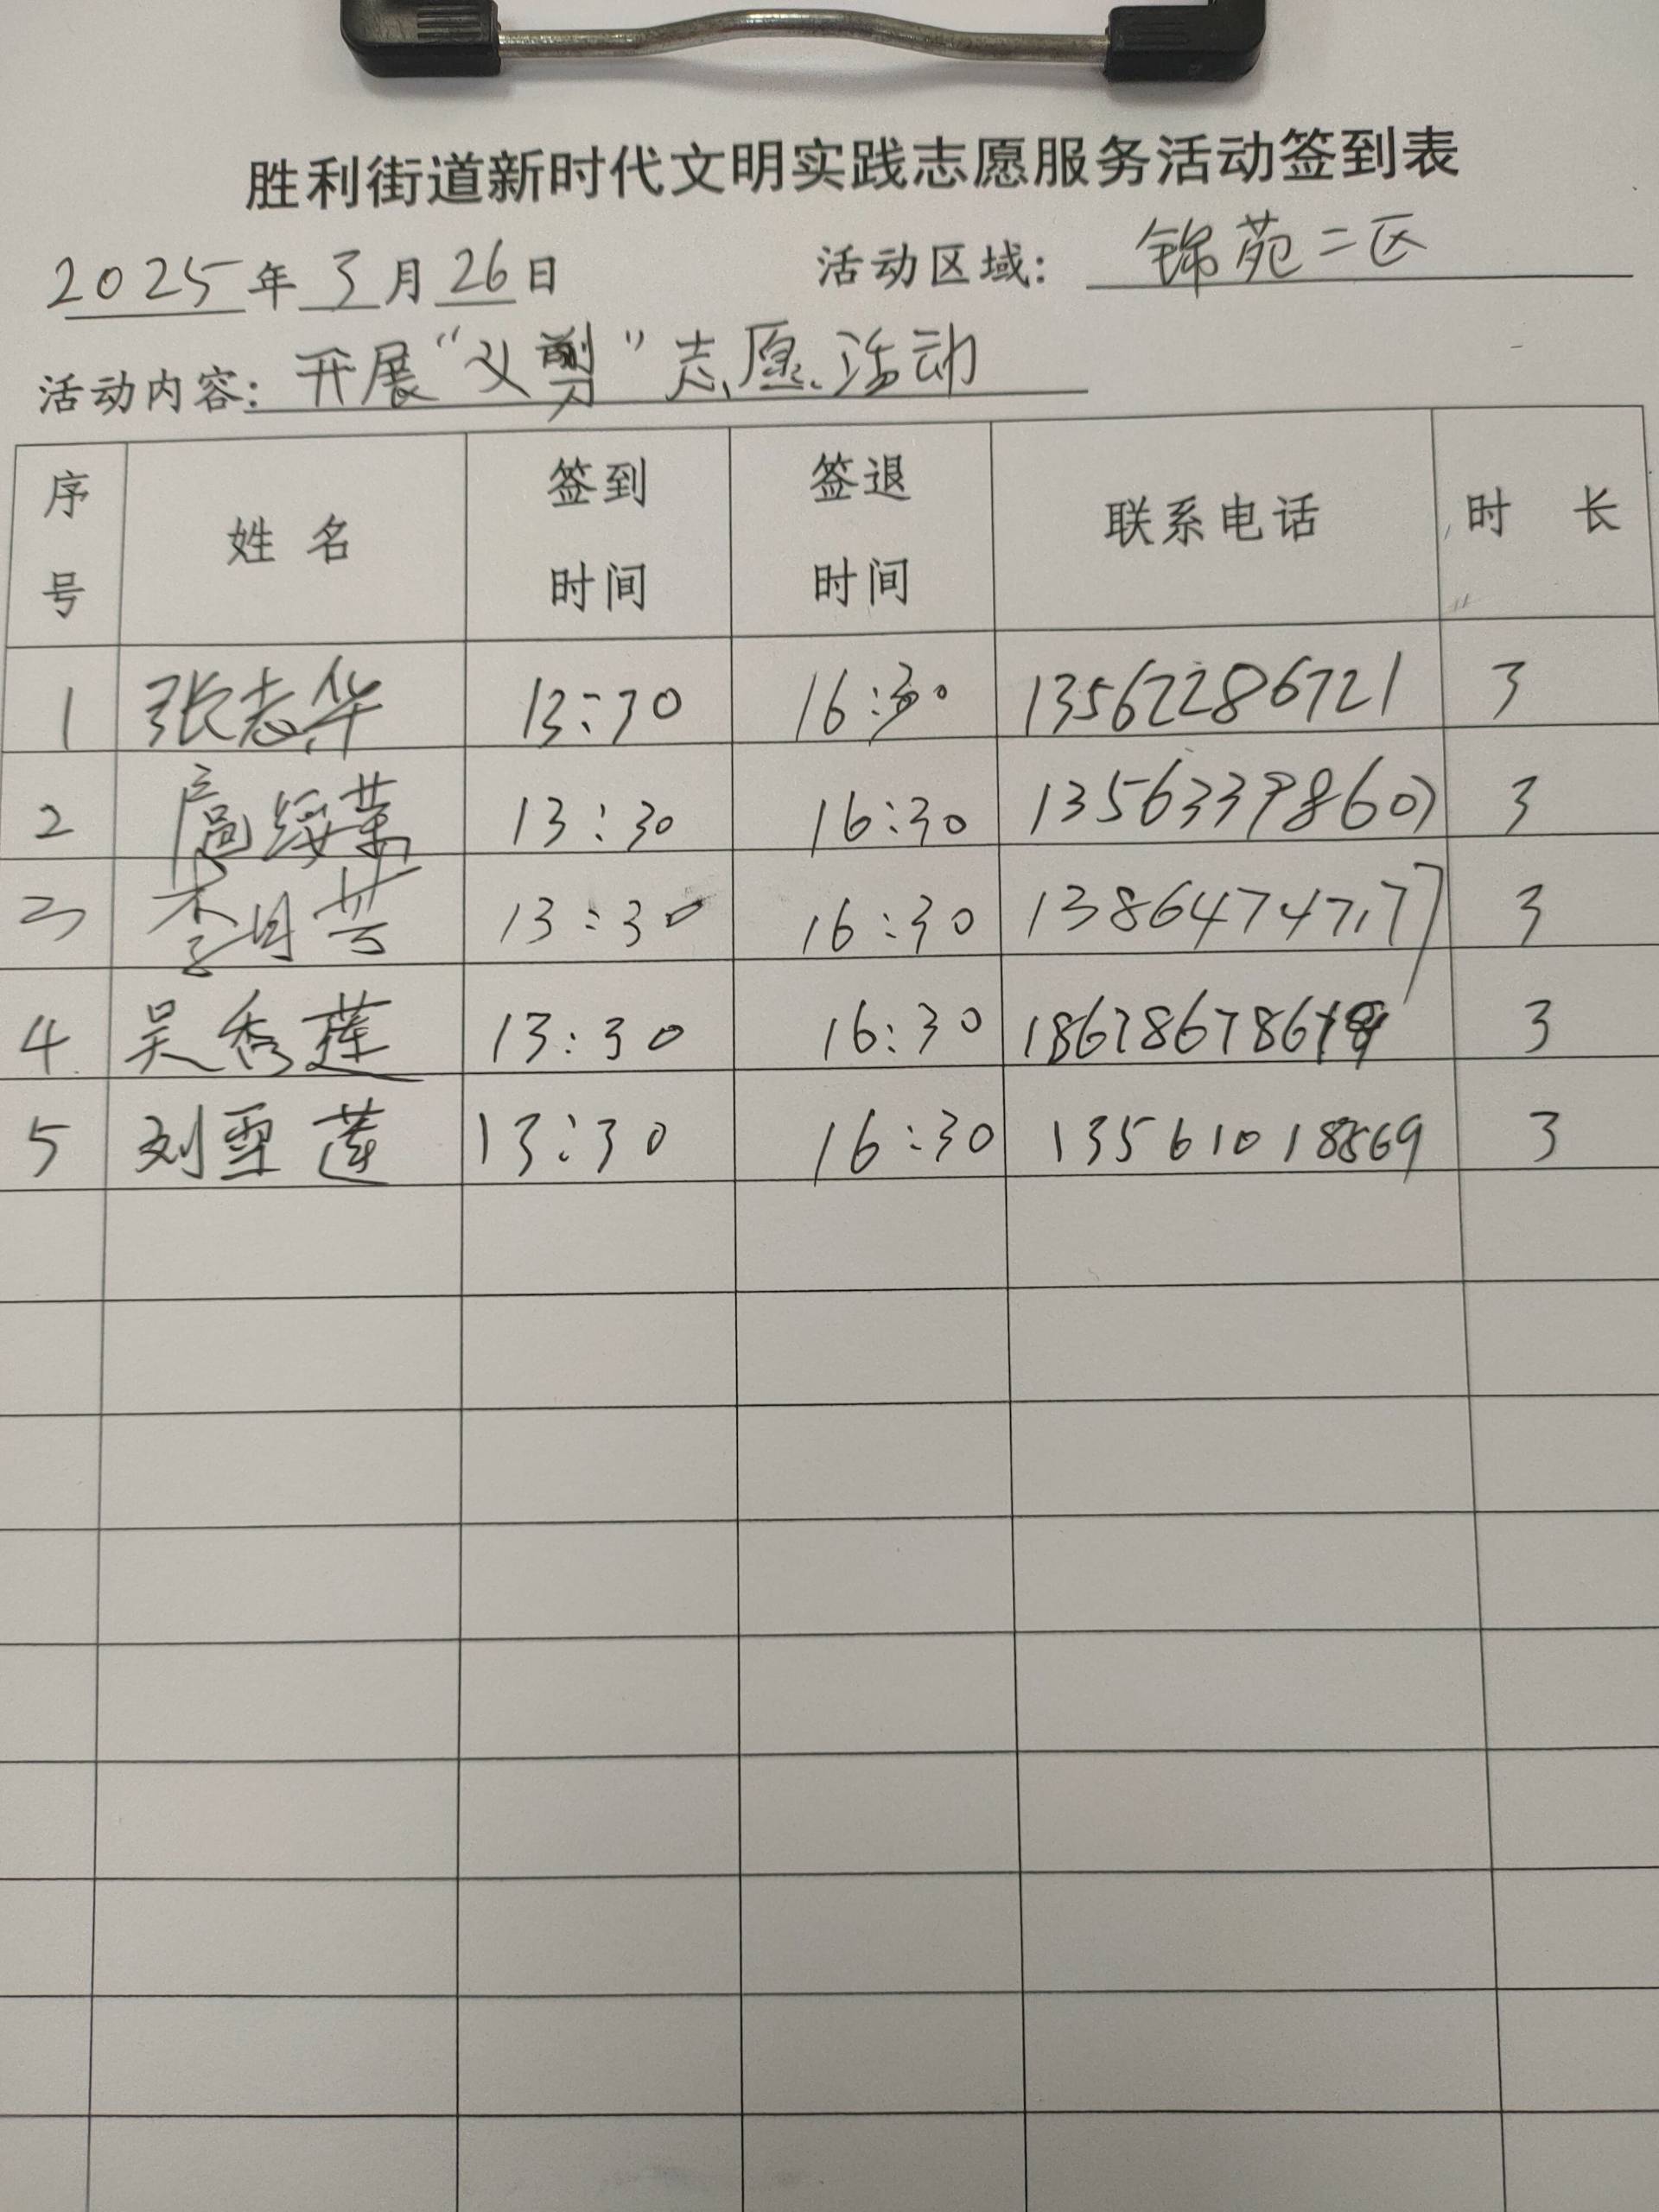 胜利街道新时代文明实践志愿服务活动签到表
2025年3月26日 活动区域：锦苑二区
活动内容：开展“义剪”志愿活动
序号 姓名 签到时间 签退时间 联系电话 时长
1 张志华 13:30 16:30 13562286721 3
2 13:30 16:30 13563398607 3
3 李月芸 13:30 16:30 13864747177 3
4 吴秀莲 13:30 16:30 3
5 刘雪莲 13:30 16:30 13561018869 3